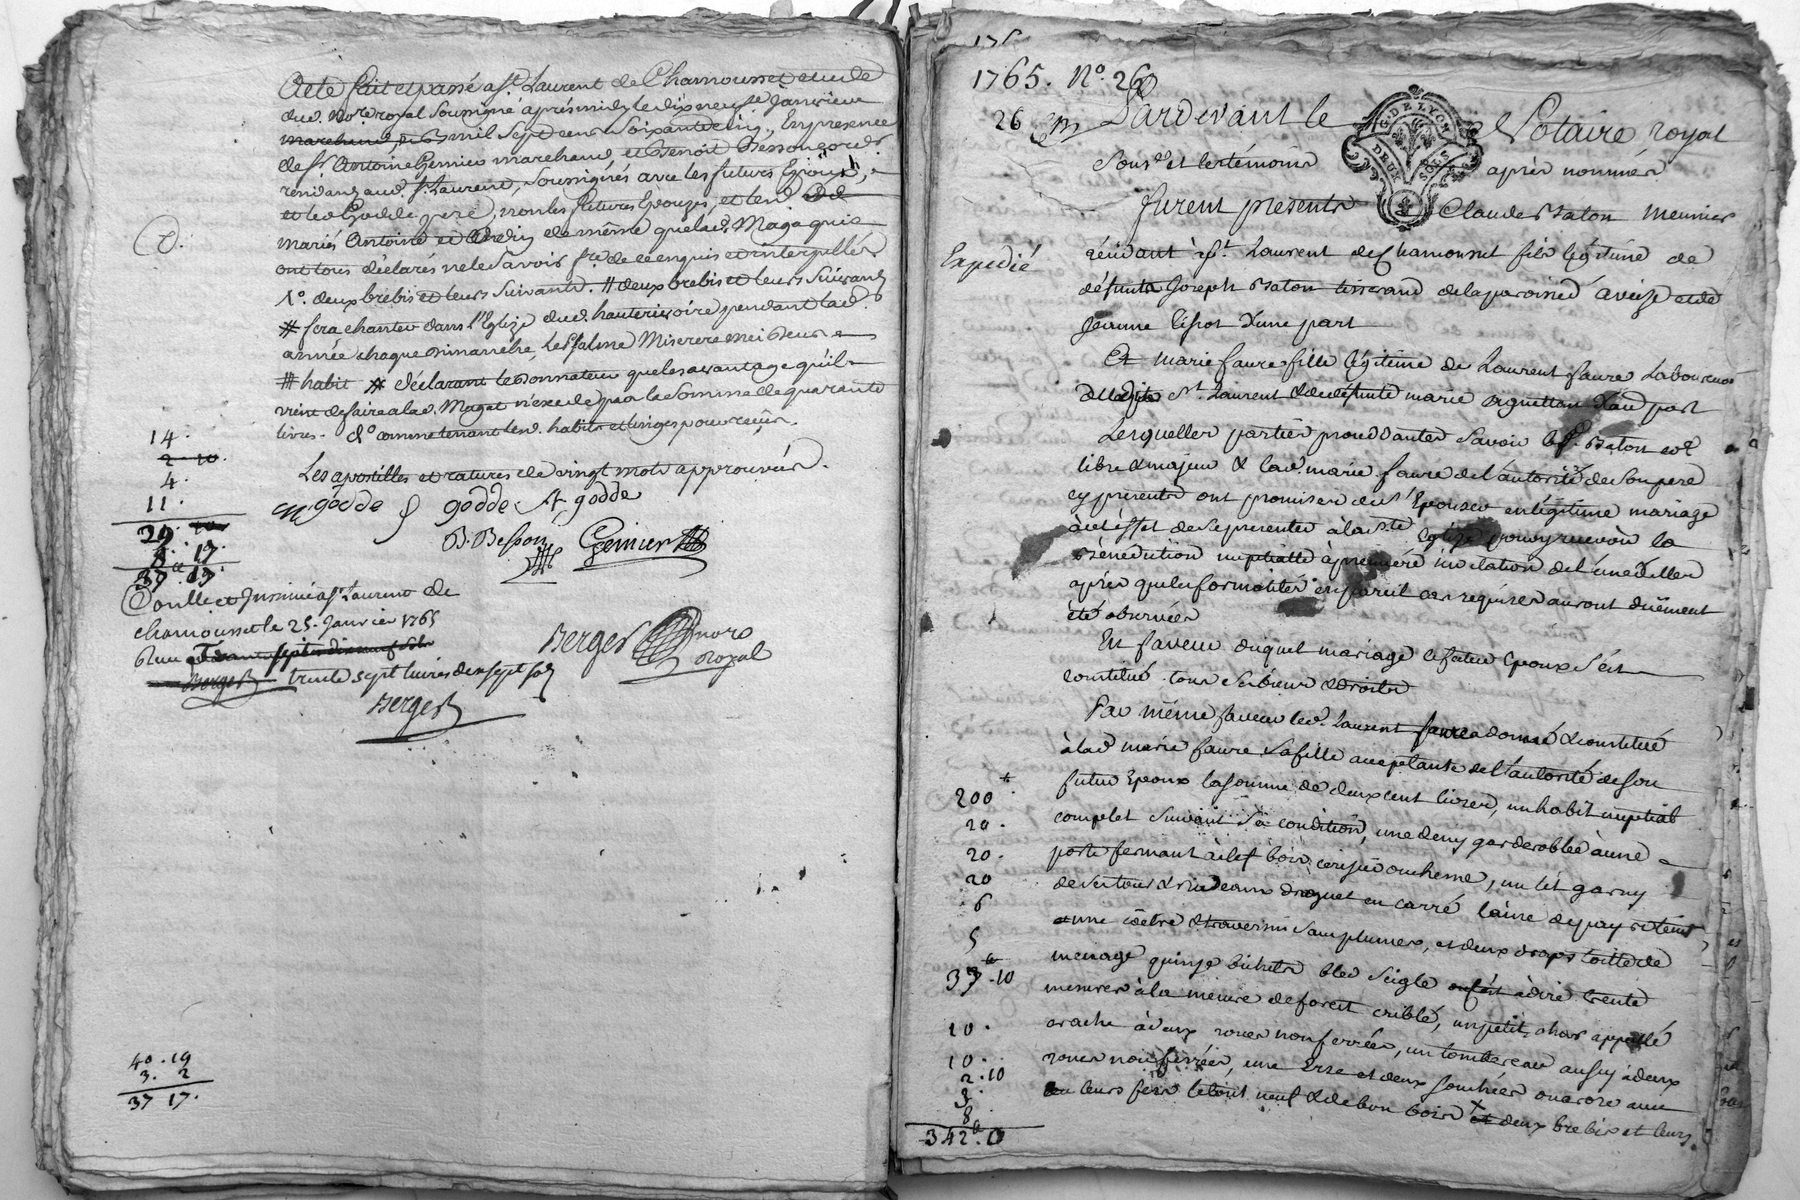 Acte fait et passé a St. Laurent de Chamousset etude
dud. Nore royal soussigné après midy le dix neufe Janvier
mil sept cens soixante cinq, En presence
de sr. Antoine Gernier marchand, et Benoit Besson
residans aud. St. Laurent, soussignés avec les futurs Epoux,
et led Godde pere, non les futures Epouzes, et led
mariés Antoine et de même que lad. Maga qui
ont tous déclarés ne le savoir fre. de ce enquis et interpellés
1o. deux brebis et leurs suivants. # deux brebis et leurs suivans
# fera chanter dans l'Eglize dud. hauterivoire pendant lad.
année chaque Dimanche, le Psalme Miserere mei Deus
# habit # déclarant le donnateur que les avantage qu'il
vient de faire a lad. Maget n'exede pas la somme de quarante
livres. do comme tenant led. habits et linges pour reçus.
Les apostilles et ratures de vingt mots approuvées.
godde godde A godde
B. Besson Gernier
14.
2 10.
4.
11.
29. 10
8. 17.
37. 17.
Controllé et Insinué a St. Laurent de
chamousset le 25. Janvier 1765
Reçu
Berger trente sept livres dix sept sols
Berger
Berger nore
royal
40. 19
3. 2
37 17.
176
1765. No. 26
26 Pardevant le Notaire royal
G. DE LYON
DEUX SOLS
sousné et les témoins après nommés
furent presents Claude Baton meunier
Expedié
résidant à St. Laurent de Chamousset fils légitime de
défunt Joseph Baton tisserand de la paroisse d'aveize et de
Jeanne d'une part
Et marie faure fille légitime de Laurent faure Laboureur
dudit St. Laurent & de défunte marie d'au. part
Lesquelles parties procédantes savoir led. Baton est
libre & majeur & lad. marie faure de l'autorité de son pere
cy présente ont promises de s'Epouser en légitime mariage
à cet effet de se presenter à la Ste. Eglize pour y recevoir la
Bénédiction nuptialle à premiere invitation de l'une d'elles
après que les formalités en pareil cas requises auront duëment
été observées
En faveur duquel mariage le futur Epoux s'est
constitué tous ses biens & droits
Par même faveur led. Laurent faure a donné & constitué
à lad marie faure sa fille acceptante de l'autorité de son
futur Epoux la somme de deux cent livres, un habit nuptial
complet suivant sa condition, une demy garderobbe à une
porte fermant à clef bois cerisier ou chene, un lit garny
de ses tour & rideaux droguet en carré laine de pays & teint
et une coëtre & traversin sans plumes, et deux draps toille de
menage quinze bichets bled seigle c'est à dire trente
mesures à la mesure de forest criblé, un petit char appellé
arache à deux roues non ferrées, un tombereau aussy à deux
roues non ferrées, une Erse et deux ou arare avec
leurs fers le tout neuf & de bon bois et deux brebis et leurs
200.
20.
20.
20
6
5
37. 10
10.
10.
2. 10
3.
8
342. 0